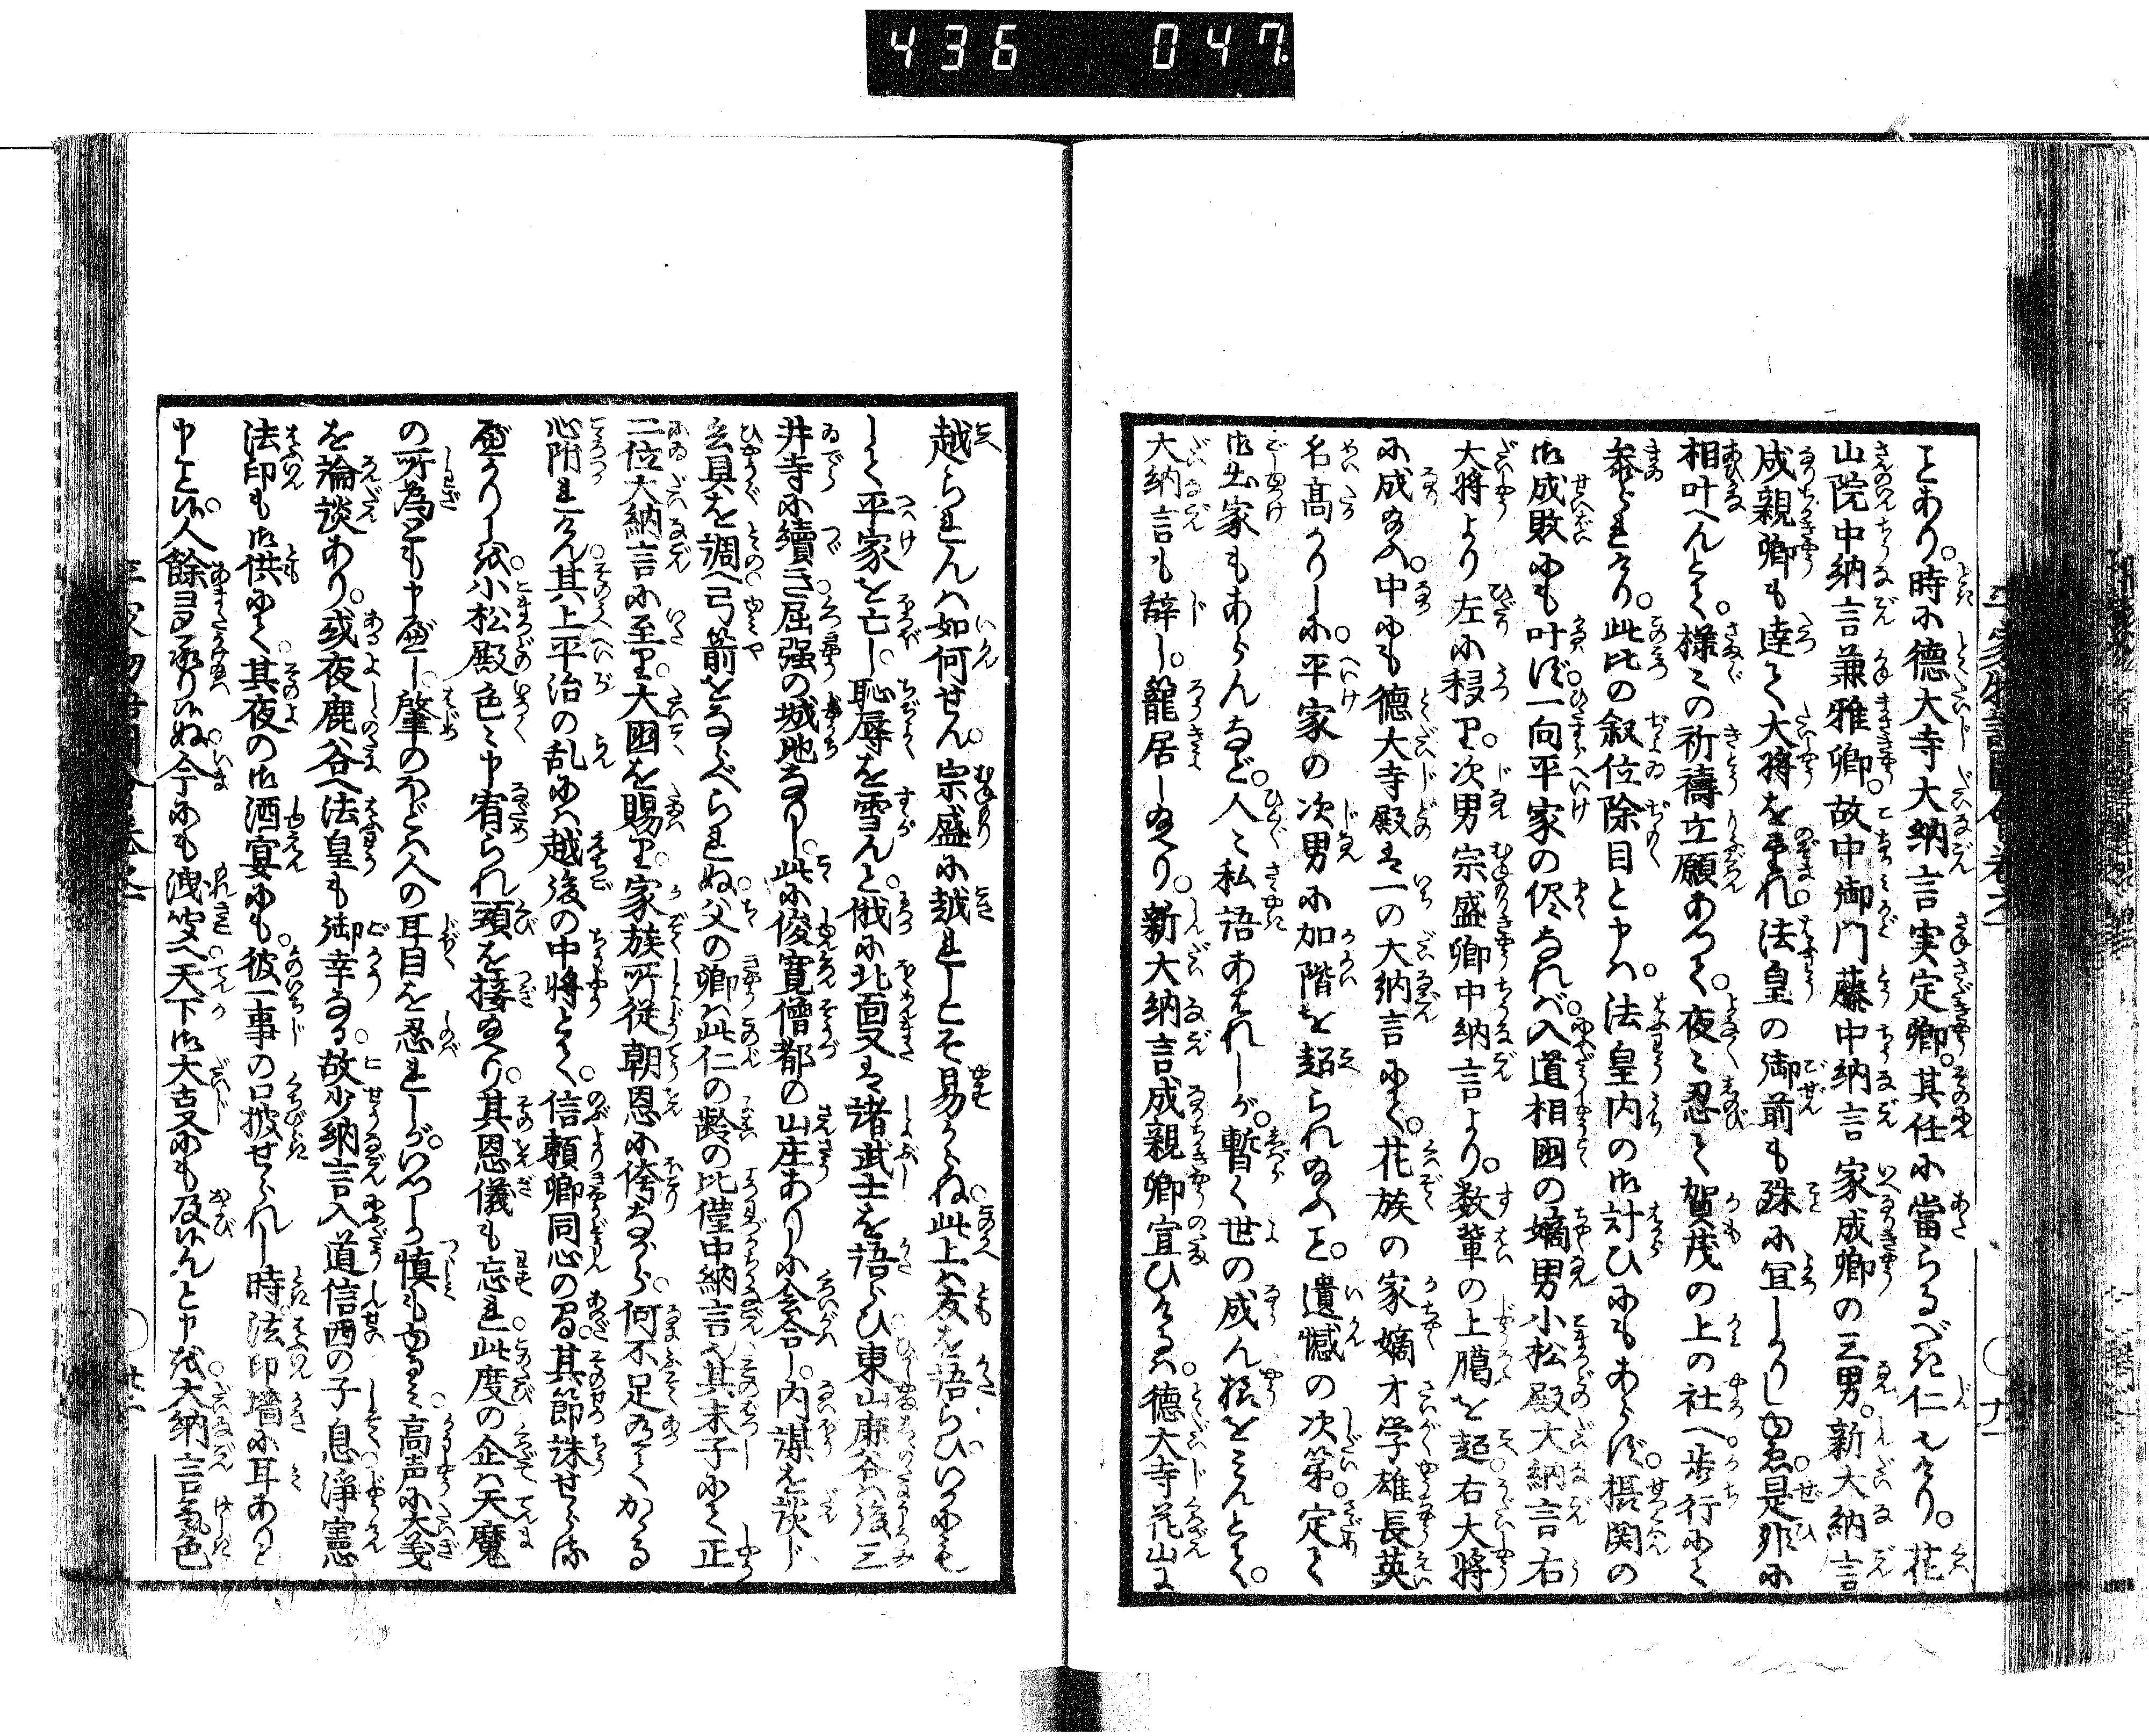 436 047
ことあり。時に徳大寺大納言実定卿。其任に當らるべき仁也けり。花
山院中納言兼雅卿。故中御門藤中納言家成卿の三男。新大納言
成親卿も達て大将を望れ法皇の御前も殊に宜しかりしゆゑ是非に
相叶へんとて。様々の祈禱立願あつて。夜々忍て賀茂の上の社へ歩行にて
参られけり。此比の叙位除目と申は。法皇内の御計ひにもあらず。摂関の
御成敗にも叶ず一向平家の侭なれバ入道相國の嫡男小松殿大納言右
大将より左に移り。次男宗盛卿中納言より。数輩の上臈を超右大将
に成給ふ。中にも徳大寺殿は一の大納言にて。花族の家嫡才学雄長英
名高かりしに平家の次男に加階を超られ給ふこと。遺憾の次第。定て
御出家もあらんなど。人々私語あはれしが。暫く世の成ん様をミんとて。
大納言も辞し。籠居し給へり。新大納言成親卿宣ひけるは。徳大寺花山に
越られんハ如何せん。宗盛に越れしこそ易からね此上ハ友を語らひいかにもし
して平家を亡し恥辱を雪んと俄に北面又は諸武士を語らひ東山鹿谷ハ後三
井寺に續き屈強の城地なりし。此に俊寛僧都の山庄ありしに会合し。内謀を談じ
兵具を調へ弓箭をならべられぬ父の卿ハ此仁の齢の比僅中納言也其末子にて正
二位大納言に至り。大国を賜り。家族所従朝恩に侉ながら。何不足ありてかかる
心附れけん其上平治の乱にハ越後の中将とて。信頼卿同心の間其節誅せらるゝ
べかりしを小松殿色々申宥られ頭を接給へり。其恩儀も忘れ此度の企ハ天魔
の所為とも申べし。肇のほどハ人の耳目を忍れしが。いつしか慎もゆるミ。高声に大義
を論談あり。或夜鹿谷へ法皇も御幸なる。故少納言入道信西の子息淨憲
法印も御供にて。其夜の御酒宴にも。彼一事の口披せられし時法印墻に耳ありと
申こと候。人餘多承り候ぬ今にも洩聞へ天下御大事にも及候んと申を大納言氣色